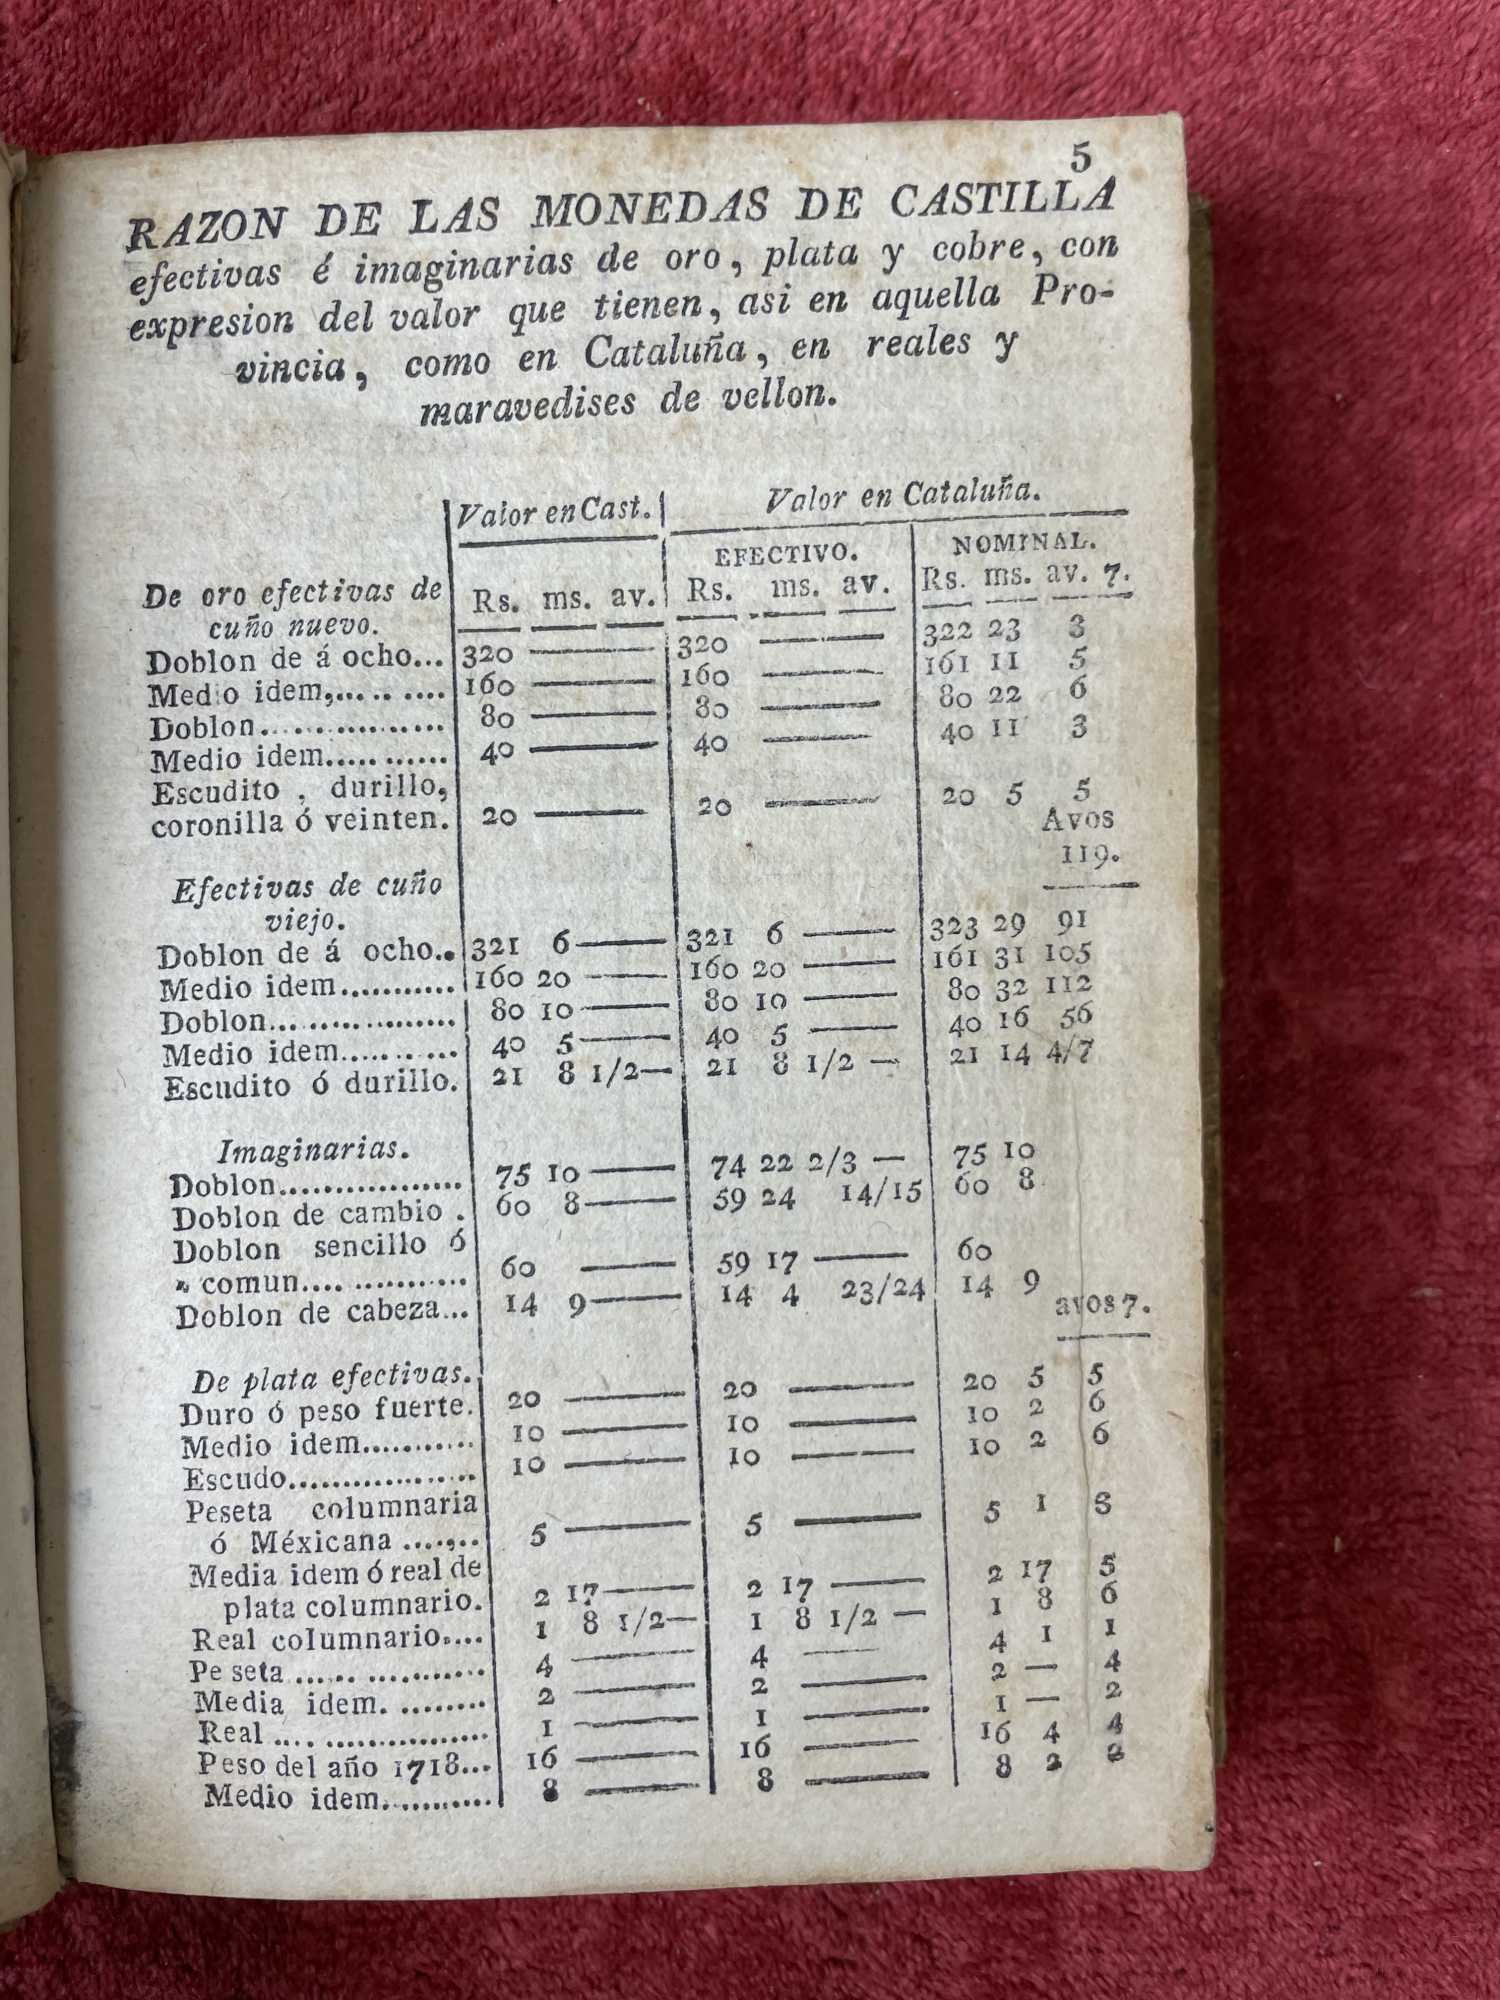 5
RAZON DE LAS MONEDAS DE CASTILLA
efectivas é imaginarias de oro, plata y cobre, con
expresion del valor que tienen, asi en aquella Pro-
vincia, como en Cataluña, en reales y
maravedises de vellon.
Valor en Cast. Valor en Cataluña.
EFECTIVO. NOMINAL.
De oro efectivas de Rs. ms. av. Rs. ms. av. Rs. ms. av. 7.
cuño nuevo.
Doblon de á ocho... 320 — 320 — 322 23 3
Medio idem,........ 160 — 160 — 161 11 5
Doblon................. 80 — 80 — 80 22 6
Medio idem........... 40 — 40 — 40 11 3
Escudito, durillo,
coronilla ó veinten. 20 — 20 — 20 5 5
Avos
119.
Efectivas de cuño
viejo.
Doblon de á ocho.. 321 6 — 321 6 — 323 29 91
Medio idem........... 160 20 — 160 20 — 161 31 105
Doblon................. 80 10 — 80 10 — 80 32 112
Medio idem.......... 40 5 — 40 5 — 40 16 56
Escudito ó durillo. 21 8 1/2 — 21 8 1/2 — 21 14 4/7
Imaginarias.
Doblon................. 75 10 — 74 22 2/3 — 75 10
Doblon de cambio . 60 8 — 59 24 14/15 60 8
Doblon sencillo ó
comun............... 60 — 59 17 — 60
Doblon de cabeza... 14 9 — 14 4 23/24 14 9
avos 7.
De plata efectivas.
Duro ó peso fuerte. 20 — 20 — 20 5 5
Medio idem........... 10 — 10 — 10 2 6
Escudo.................. 10 — 10 — 10 2 6
Peseta columnaria
ó Méxicana ....,.. 5 — 5 — 5 1 3
Media idem ó real de
plata columnario. 2 17 — 2 17 — 2 17 5
Real columnario.... 1 8 1/2 — 1 8 1/2 — 1 8 6
Peseta ................. 4 — 4 — 4 1 1
Media idem. ........ 2 — 2 — 2 — 4
Real .................... 1 — 1 — 1 — 2
Peso del año 1718... 16 — 16 — 16 4 4
Medio idem........... 8 — 8 — 8 2 2